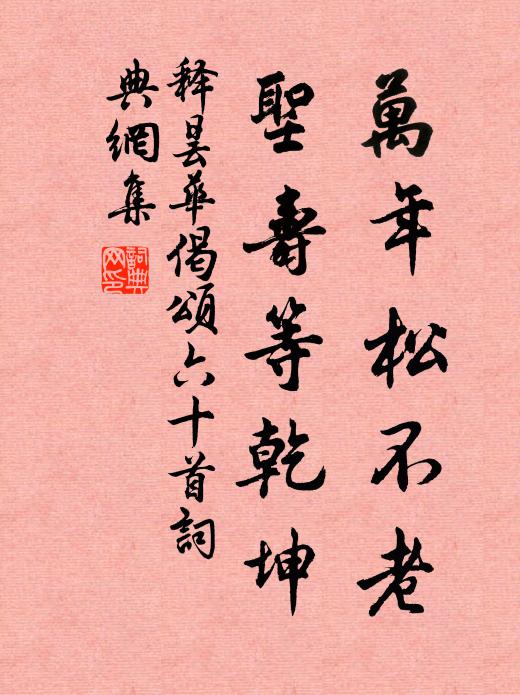 萬年松不老
聖壽等乾坤
释昙華偈頌六十首詞
典網集
詞典网印